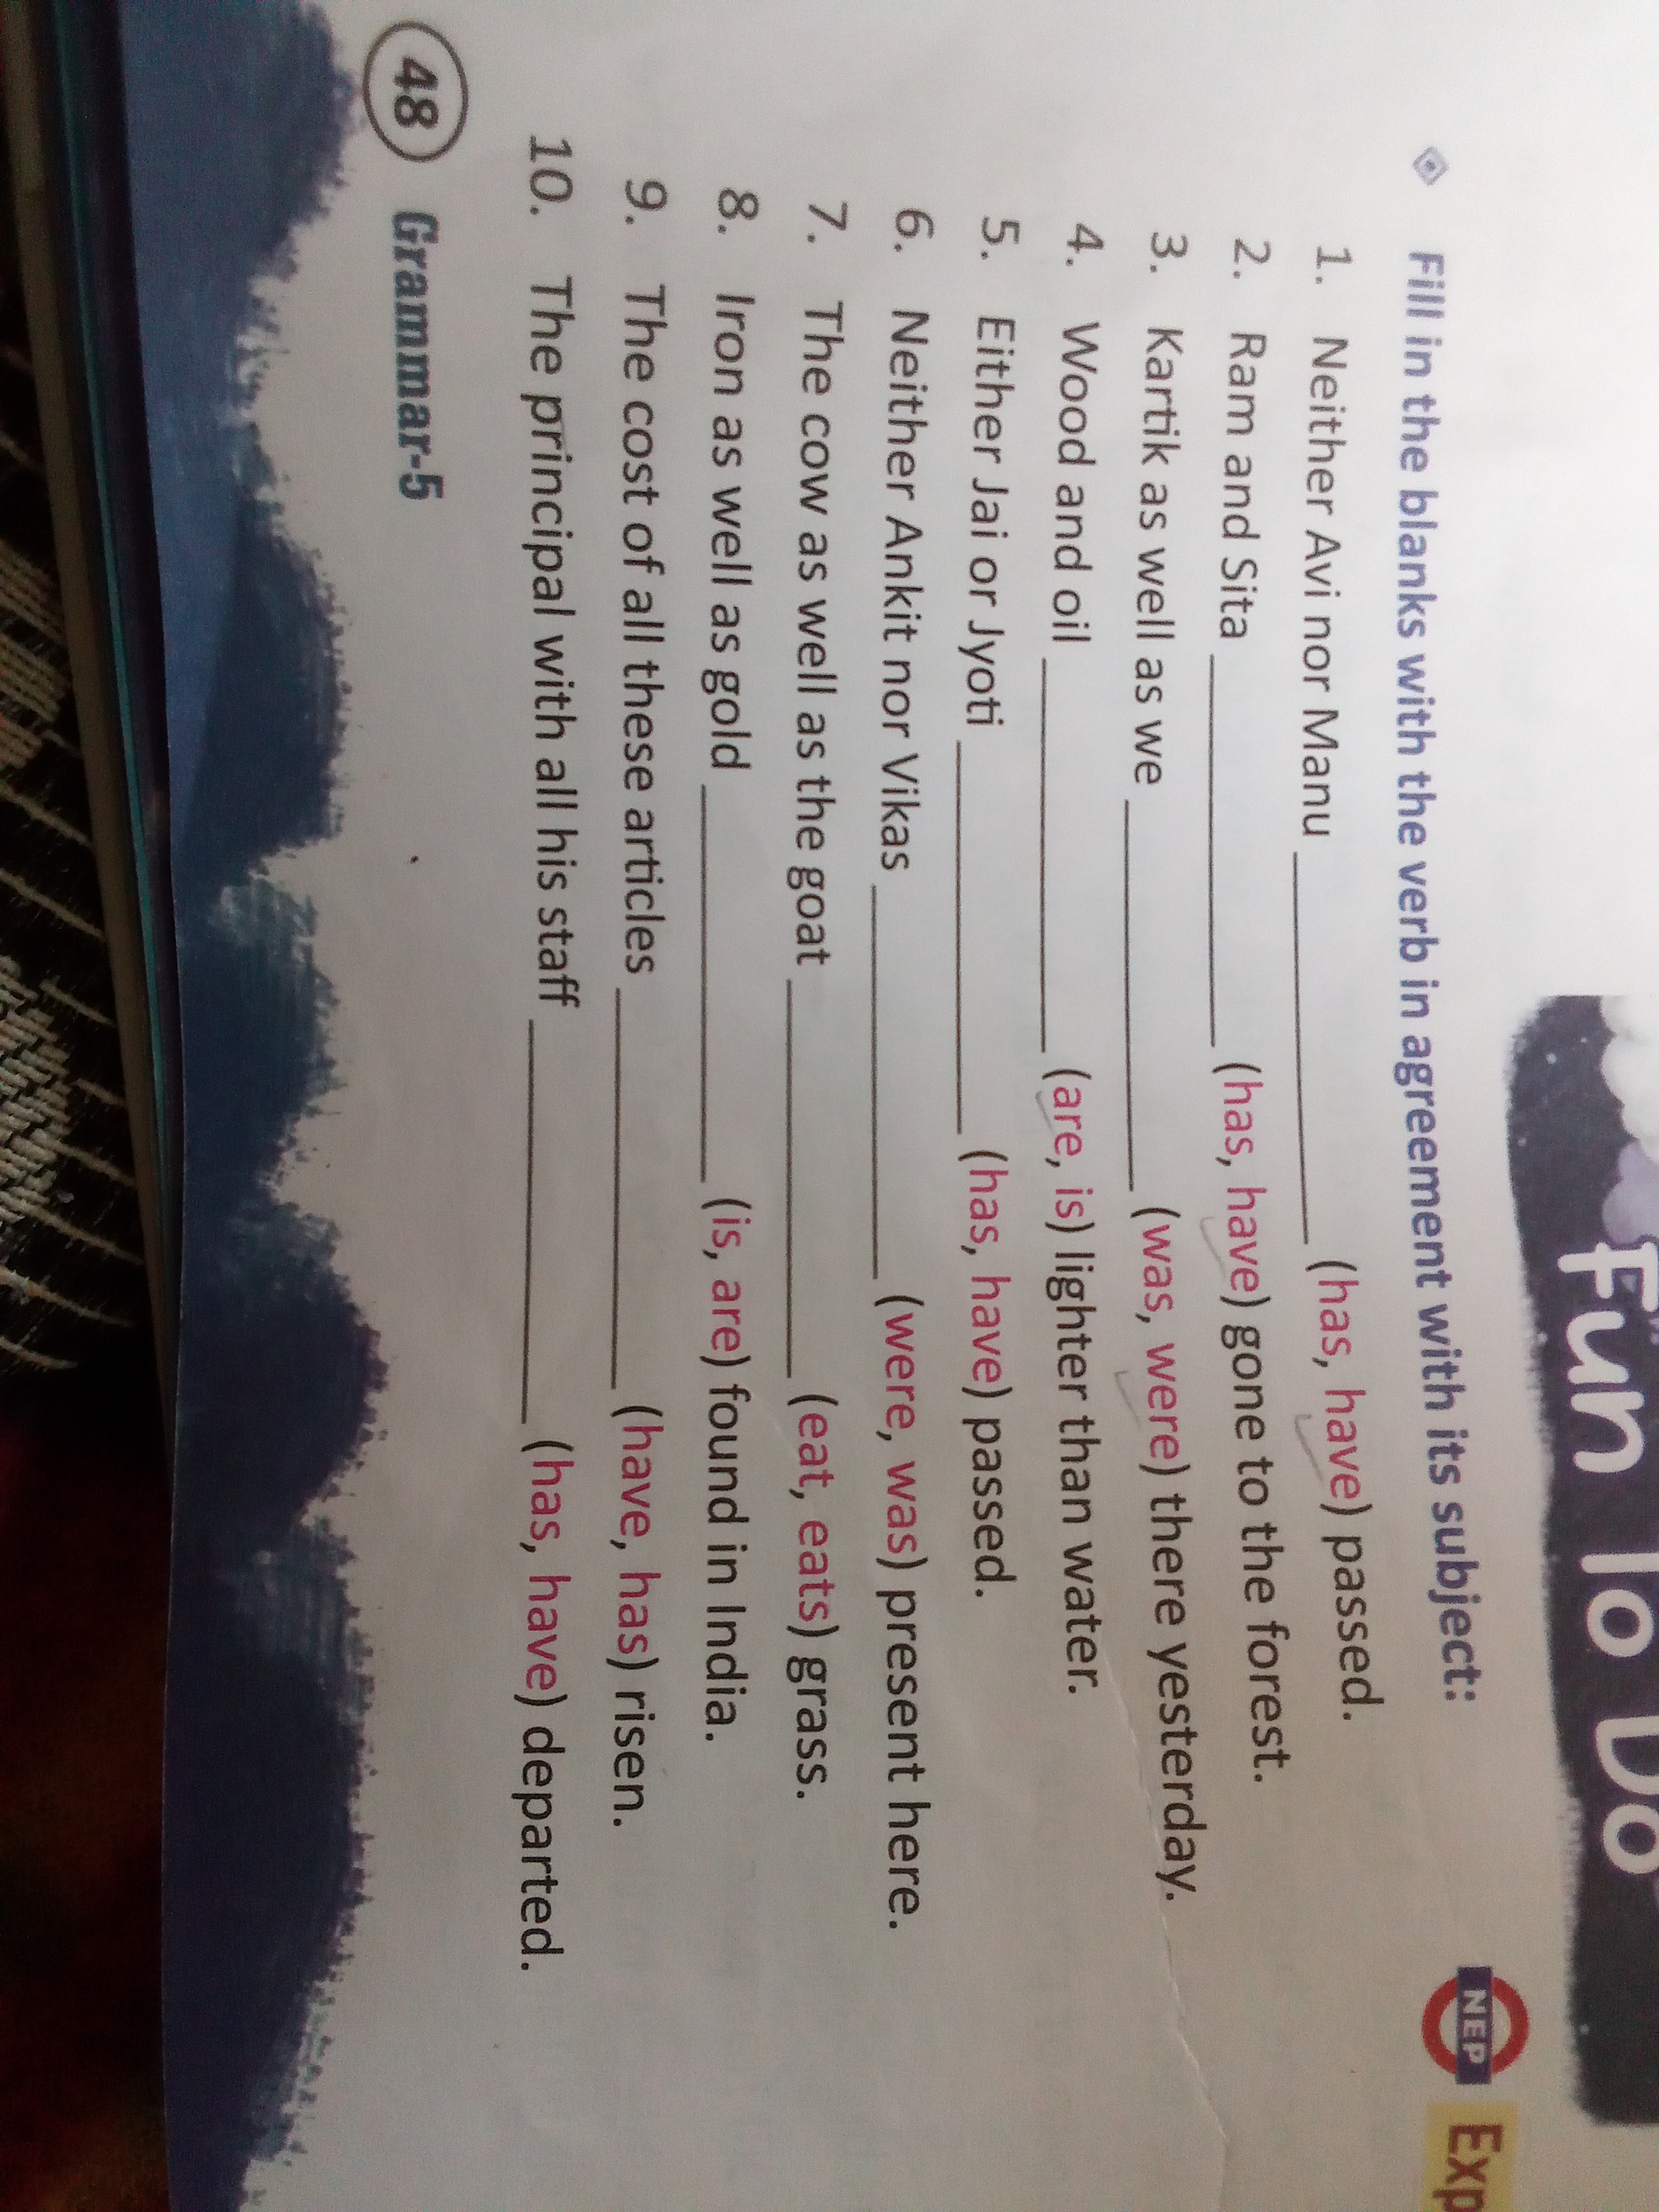 Fun To Do
NEP Exp
Fill in the blanks with the verb in agreement with its subject:
1. Neither Avi nor Manu ____________ (has, have) passed.
2. Ram and Sita ____________ (has, have) gone to the forest.
3. Kartik as well as we ____________ (was, were) there yesterday.
4. Wood and oil ____________ (are, is) lighter than water.
5. Either Jai or Jyoti ____________ (has, have) passed.
6. Neither Ankit nor Vikas ____________ (were, was) present here.
7. The cow as well as the goat ____________ (eat, eats) grass.
8. Iron as well as gold ____________ (is, are) found in India.
9. The cost of all these articles ____________ (have, has) risen.
10. The principal with all his staff ____________ (has, have) departed.
48 Grammar-5